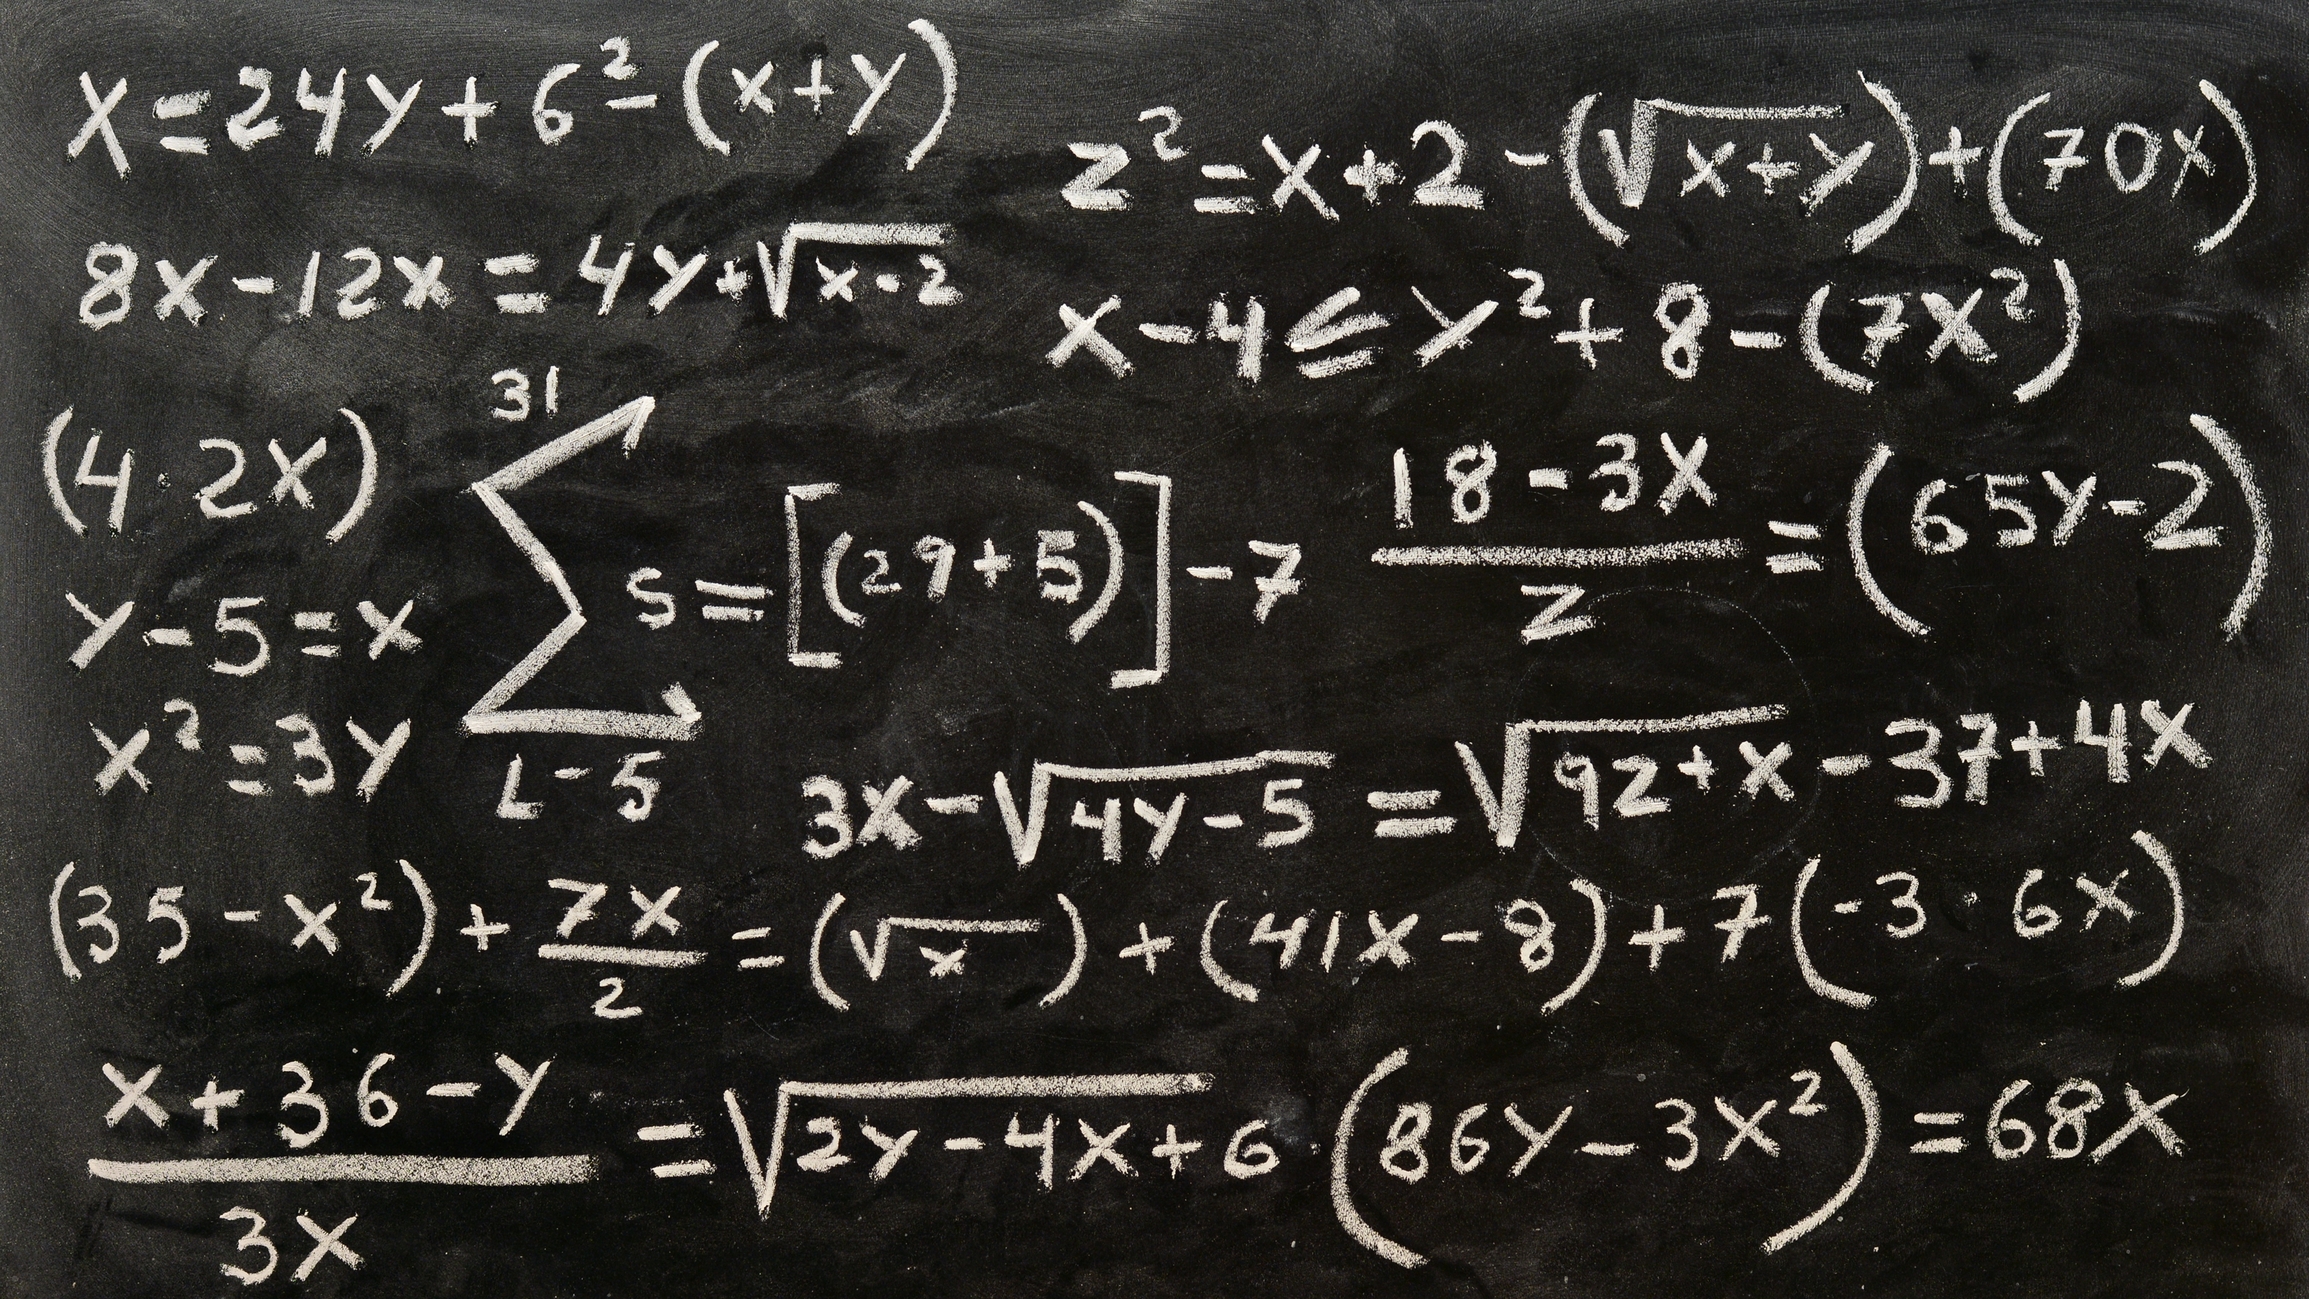 x = 24y + 6² - (x+y)
z² = x + 2 - (√x+y) + (70x)
8x - 12x = 4y + √x·2
x - 4 ≤ y² + 8 - (7x²)
(4 · 2x)
31
∑ s = [(29+5)] - 7
L - 5
18 - 3x / z = (65y - 2)
y - 5 = x
x² = 3y
3x - √4y - 5 = √92 + x - 37 + 4x
(35 - x²) + 7x / 2 = (√x) + (41x - 8) + 7(-3 · 6x)
x + 36 - y / 3x = √2y - 4x + 6 · (86y - 3x²) = 68x